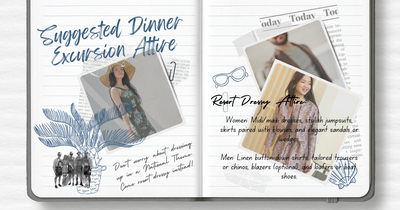 Suggested Dinner
Excursion Attire
Don't worry about dressing
up in a National Theme
Come resort dressy instead!
Today Today Toda
Resort Dressy Attire
Women: Midi/maxi dresses, stylish jumpsuits,
skirts paired with blouses, and elegant sandals or
Men: Linen button down shirts, tailored trousers
or chinos, blazers (optional), and loafers or boat
shoes.